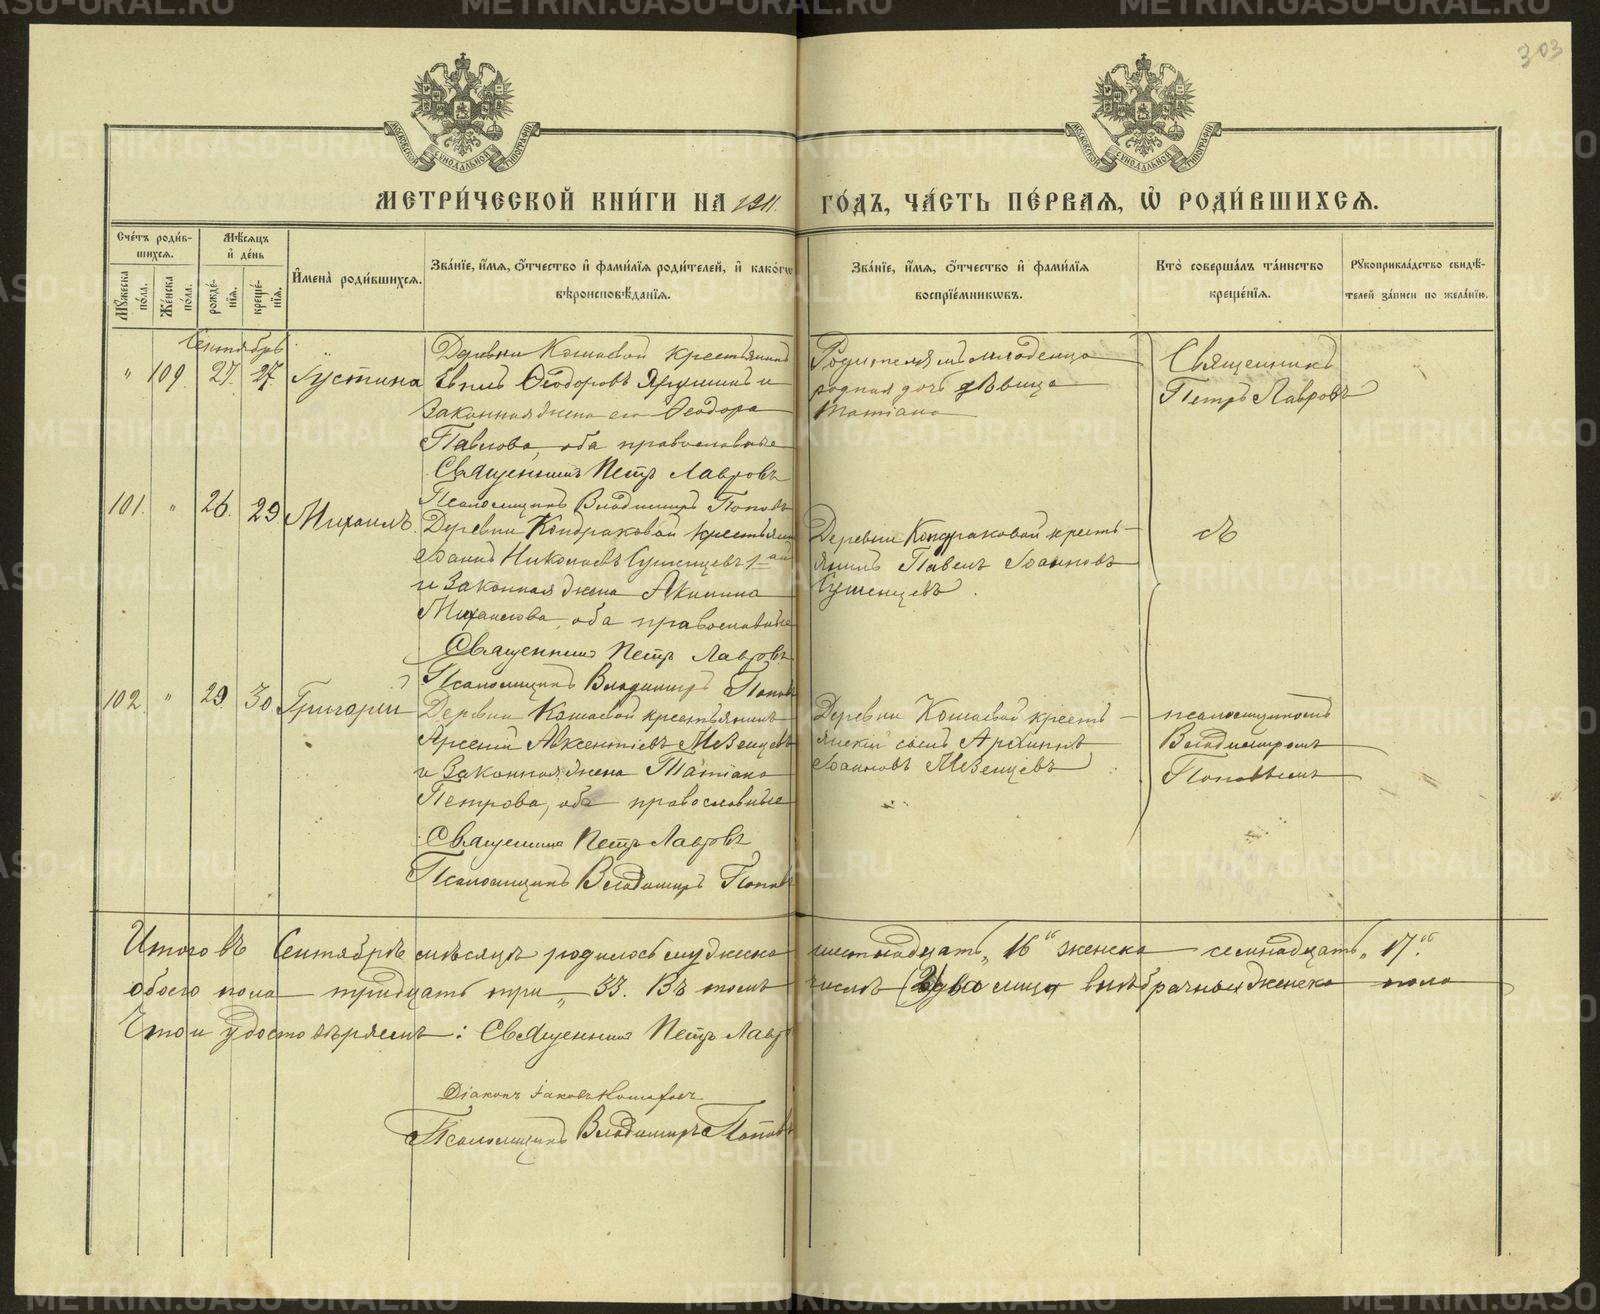 303
МОСКОВСКОЙ СѴНОДАЛЬНОЙ ТИПОГРАФІИ
МОСКОВСКОЙ СѴНОДАЛЬНОЙ ТИПОГРАФІИ
МЕТРИ́ЧЕСКОЙ КНИ́ГИ НА 1911. ГО́ДЪ, ЧА́СТЬ ПЕ́РВАѦ, Ѡ҆ РОДИ́ВШИХСѦ.
Сче́тъ роди́в-
шихсѧ.
Мꙋ́жеска по́ла.
Же́нска по́ла.
Мѣ́сѧцъ и҆ де́нь
рожде́-нїѧ.
креще́-нїѧ.
И҆мена̀ роди́вшихсѧ.
Зва́нїе, и҆́мѧ, ѻ҆́тчество и҆ фами́лїѧ роди́телей, и҆ како́гѡ
вѣроисповѣ́данїѧ.
Зва́нїе, и҆́мѧ, ѻ҆́тчество и҆ фами́лїѧ
воспрїе́мникѡвъ.
Кто̀ соверша́лъ та́инство
креще́нїѧ.
Рꙋкоприкла́дство свидѣ́-
телей за́писи по жела́нїю.
Сентябрь
" 109. 27. 27. Іустина
Деревни Кошаевой крестьянинъ
Евплъ Ѳеодоровъ Ярушинъ и
законная жена его Ѳеодора
Павлова, оба православные
Священникъ Петръ Лавровъ
Псаломщикъ Владимиръ Поповъ
Родителямъ младенца
родная дочь дѣвица
Татіана
Священникъ
Петръ Лавровъ
101. " 26. 29 Михаилъ.
Деревни Кондраковой крестьянинъ
Іоаннъ Николаевъ Сушенцевъ 1-ый
и законная жена Акилина
Михаилова, оба православные
Священникъ Петръ Лавровъ
Псаломщикъ Владимиръ Поповъ
Деревни Кондраковой кресть-
янинъ Павелъ Іоанновъ
Сушенцевъ.
102. " 29. 30. Григорій
Деревни Кошаевой крестьянинъ
Арсеній Авксентіевъ Мезенцевъ
и законная жена Татіана
Петрова, оба православные
Священникъ Петръ Лавровъ
Псаломщикъ Владимиръ Поповъ
Деревни Кошаевой кресть-
янскій сынъ Архиппъ
Іоанновъ Мезенцевъ
псаломщикомъ
Владимиромъ
Поповымъ
Итого въ Сентябрѣ мѣсяцѣ родилось мужеска шестнадцать „16" женска семнадцать „17."
обоего пола тридцать три „33. Въ томъ числѣ два лица внѣбрачныя женска пола
Что и удостовѣряемъ: Священникъ Петръ Лавр
Діаконъ Іаковъ
Псаломщикъ Владимиръ Поповъ